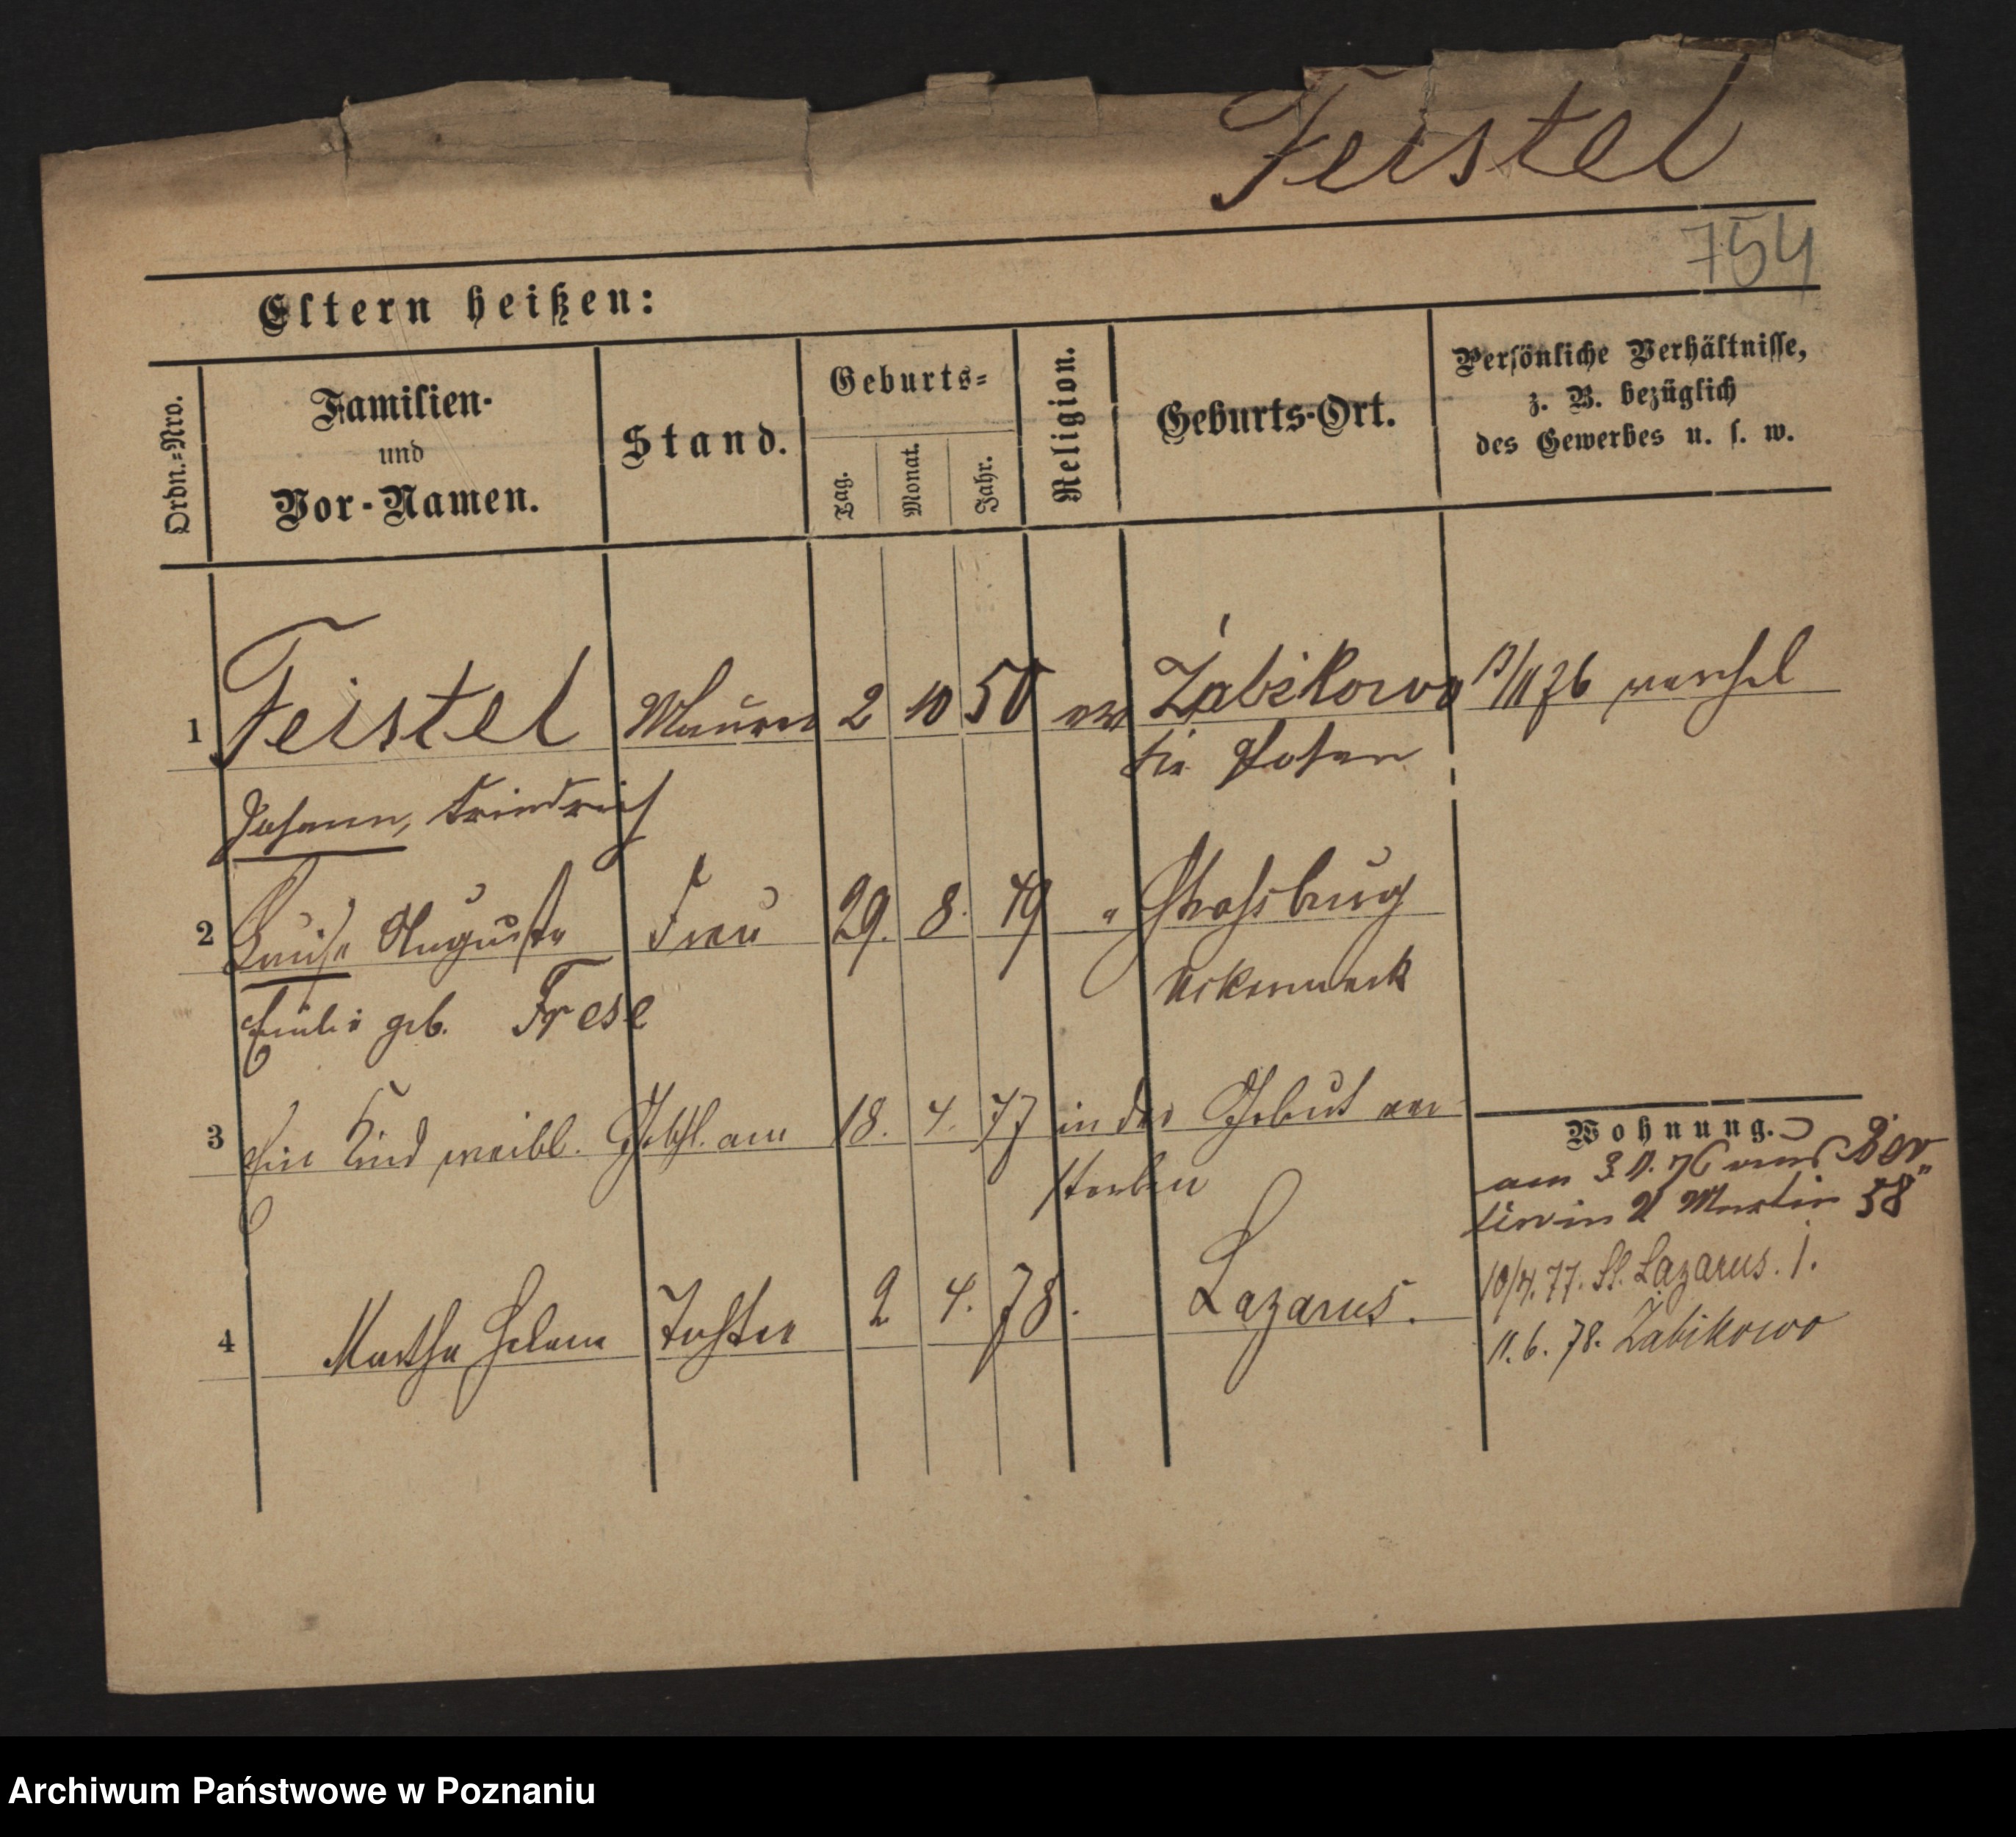 Feistel
754
Eltern heißen:
Ordn.=Nro.
Familien-
und
Vor-Namen.
Stand.
Geburts=
Tag.
Monat.
Jahr.
Religion.
Geburts-Ort.
Persönliche Verhältnisse,
z. B. bezüglich
des Gewerbes u. s. w.
1 Feistel Maurer 2 10 50 ev Żabikowo /11 76
Kr. Posen
Johann, Friedrich
2 Louise Auguste Frau 29. 8. 49 " Straßburg
Emilie geb. Frese Uckermark
3 Ein Kind weibl. Gschl. am 18. 4. 77 in der Geburt ver
storben
Wohnung.
am 3 11. 76 aus Ber
lin in St Martin 58"
10/4. 77. St. Lazarus. 1.
4 Martha Helene Tochter 2 4. 78. Lazarus.
11. 6. 78. Żabikowo
Archiwum Państwowe w Poznaniu